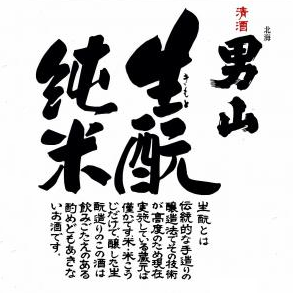 北海
清酒
男山
生酛
きもと
純米
生酛とは
伝統的な手造りの
醸造法でその技術
が高度のため現在
実施している蔵元は
僅かです米・米こう
じだけで醸した生
酛造りのこの酒は
飲みごたえのある
酌めどもあきな
いお酒です。